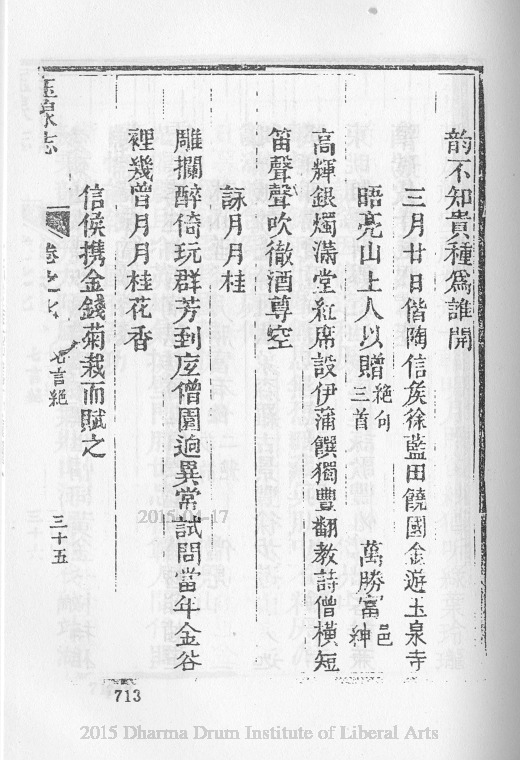 韵不知貴種為誰開
三月廿日偕陶信矦徐藍田饒國金遊玉泉寺
晤亮山上人以贈絶句三首 萬勝富邑紳
高輝銀燭滿堂紅席設伊蒲饌獨豐翻教詩僧橫短
笛聲聲吹徹酒尊空
詠月月桂
雕攔醉倚玩群芳到庋僧園逈異常試問當年金谷
裡幾曾月月桂花香
信侯携金錢菊栽而賦之
玉泉志 卷之七 七言絶 三十五
713
2015-04-17
2015 Dharma Drum Institute of Liberal Arts